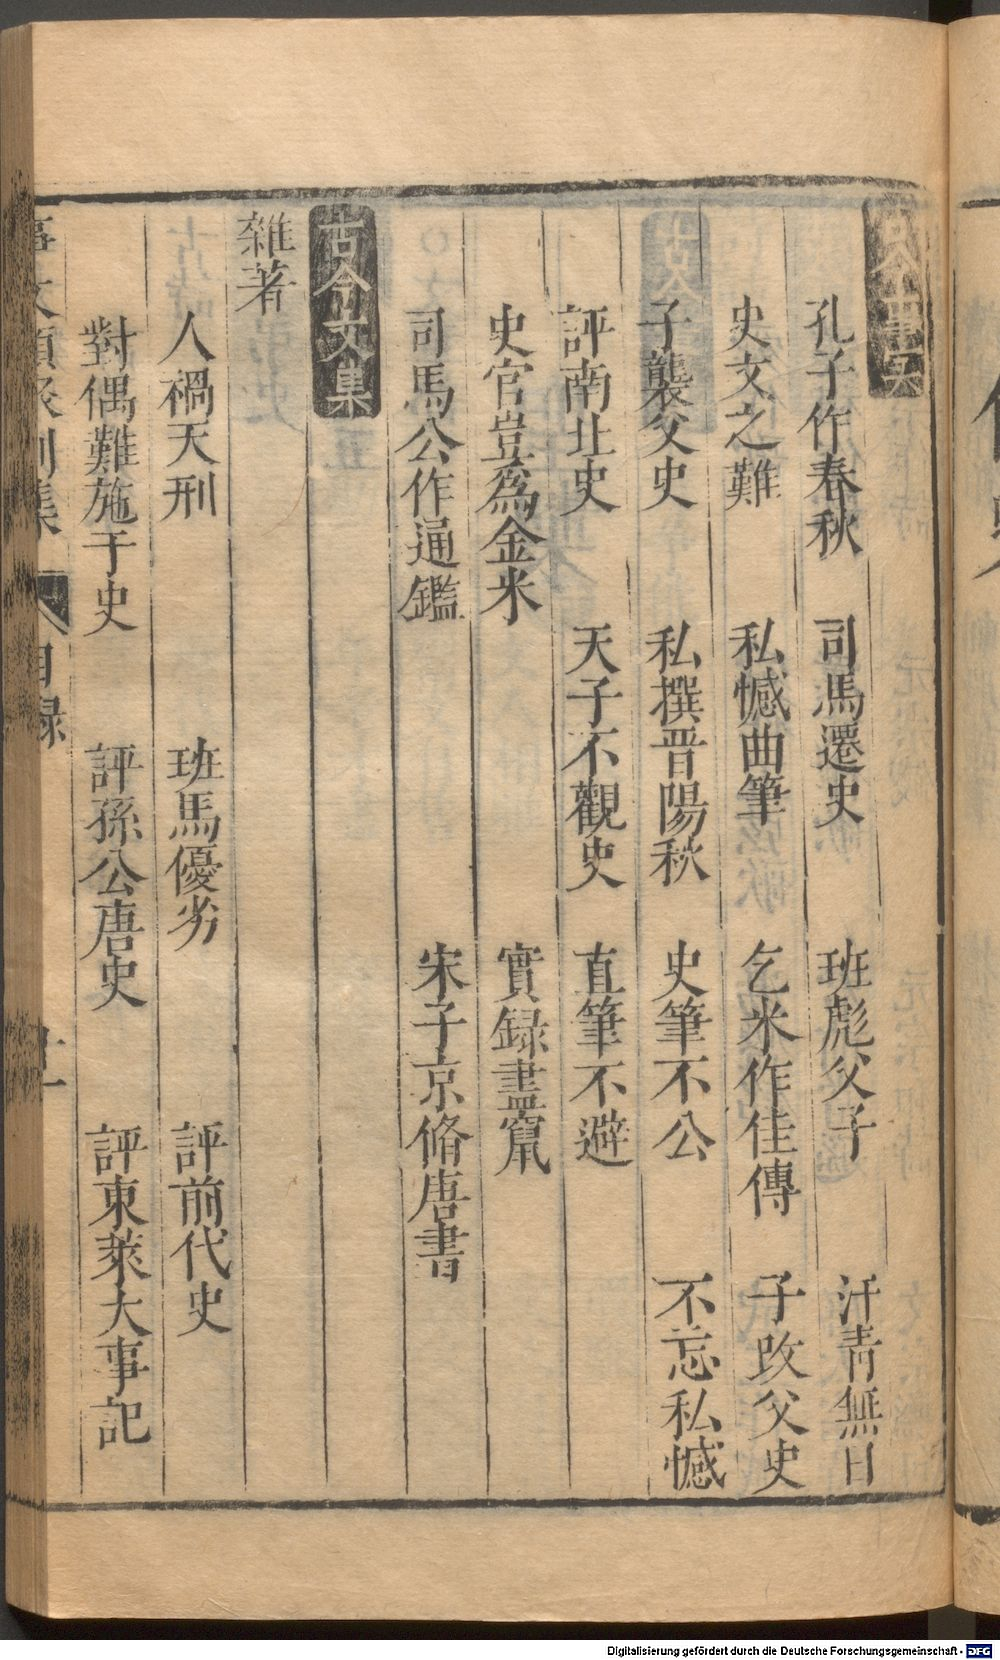 古今事實
孔子作春秋 司馬遷史 班彪父子 汗青無日
史文之難 私憾曲筆 乞米作佳傳 子改父史
子襲父史 私撰晋陽秋 史筆不公 不忘私憾
評南北史 天子不觀史 直筆不避
史官豈爲金米 實録盡竄
司馬公作通鑑 宋子京脩唐書
古今文集
雜著
人禍天刑 班馬優劣 評前代史
對偶難施于史 評孫公唐史 評東萊大事記
事文類聚別集 目録
Digitalisierung gefördert durch die Deutsche Forschungsgemeinschaft - DFG